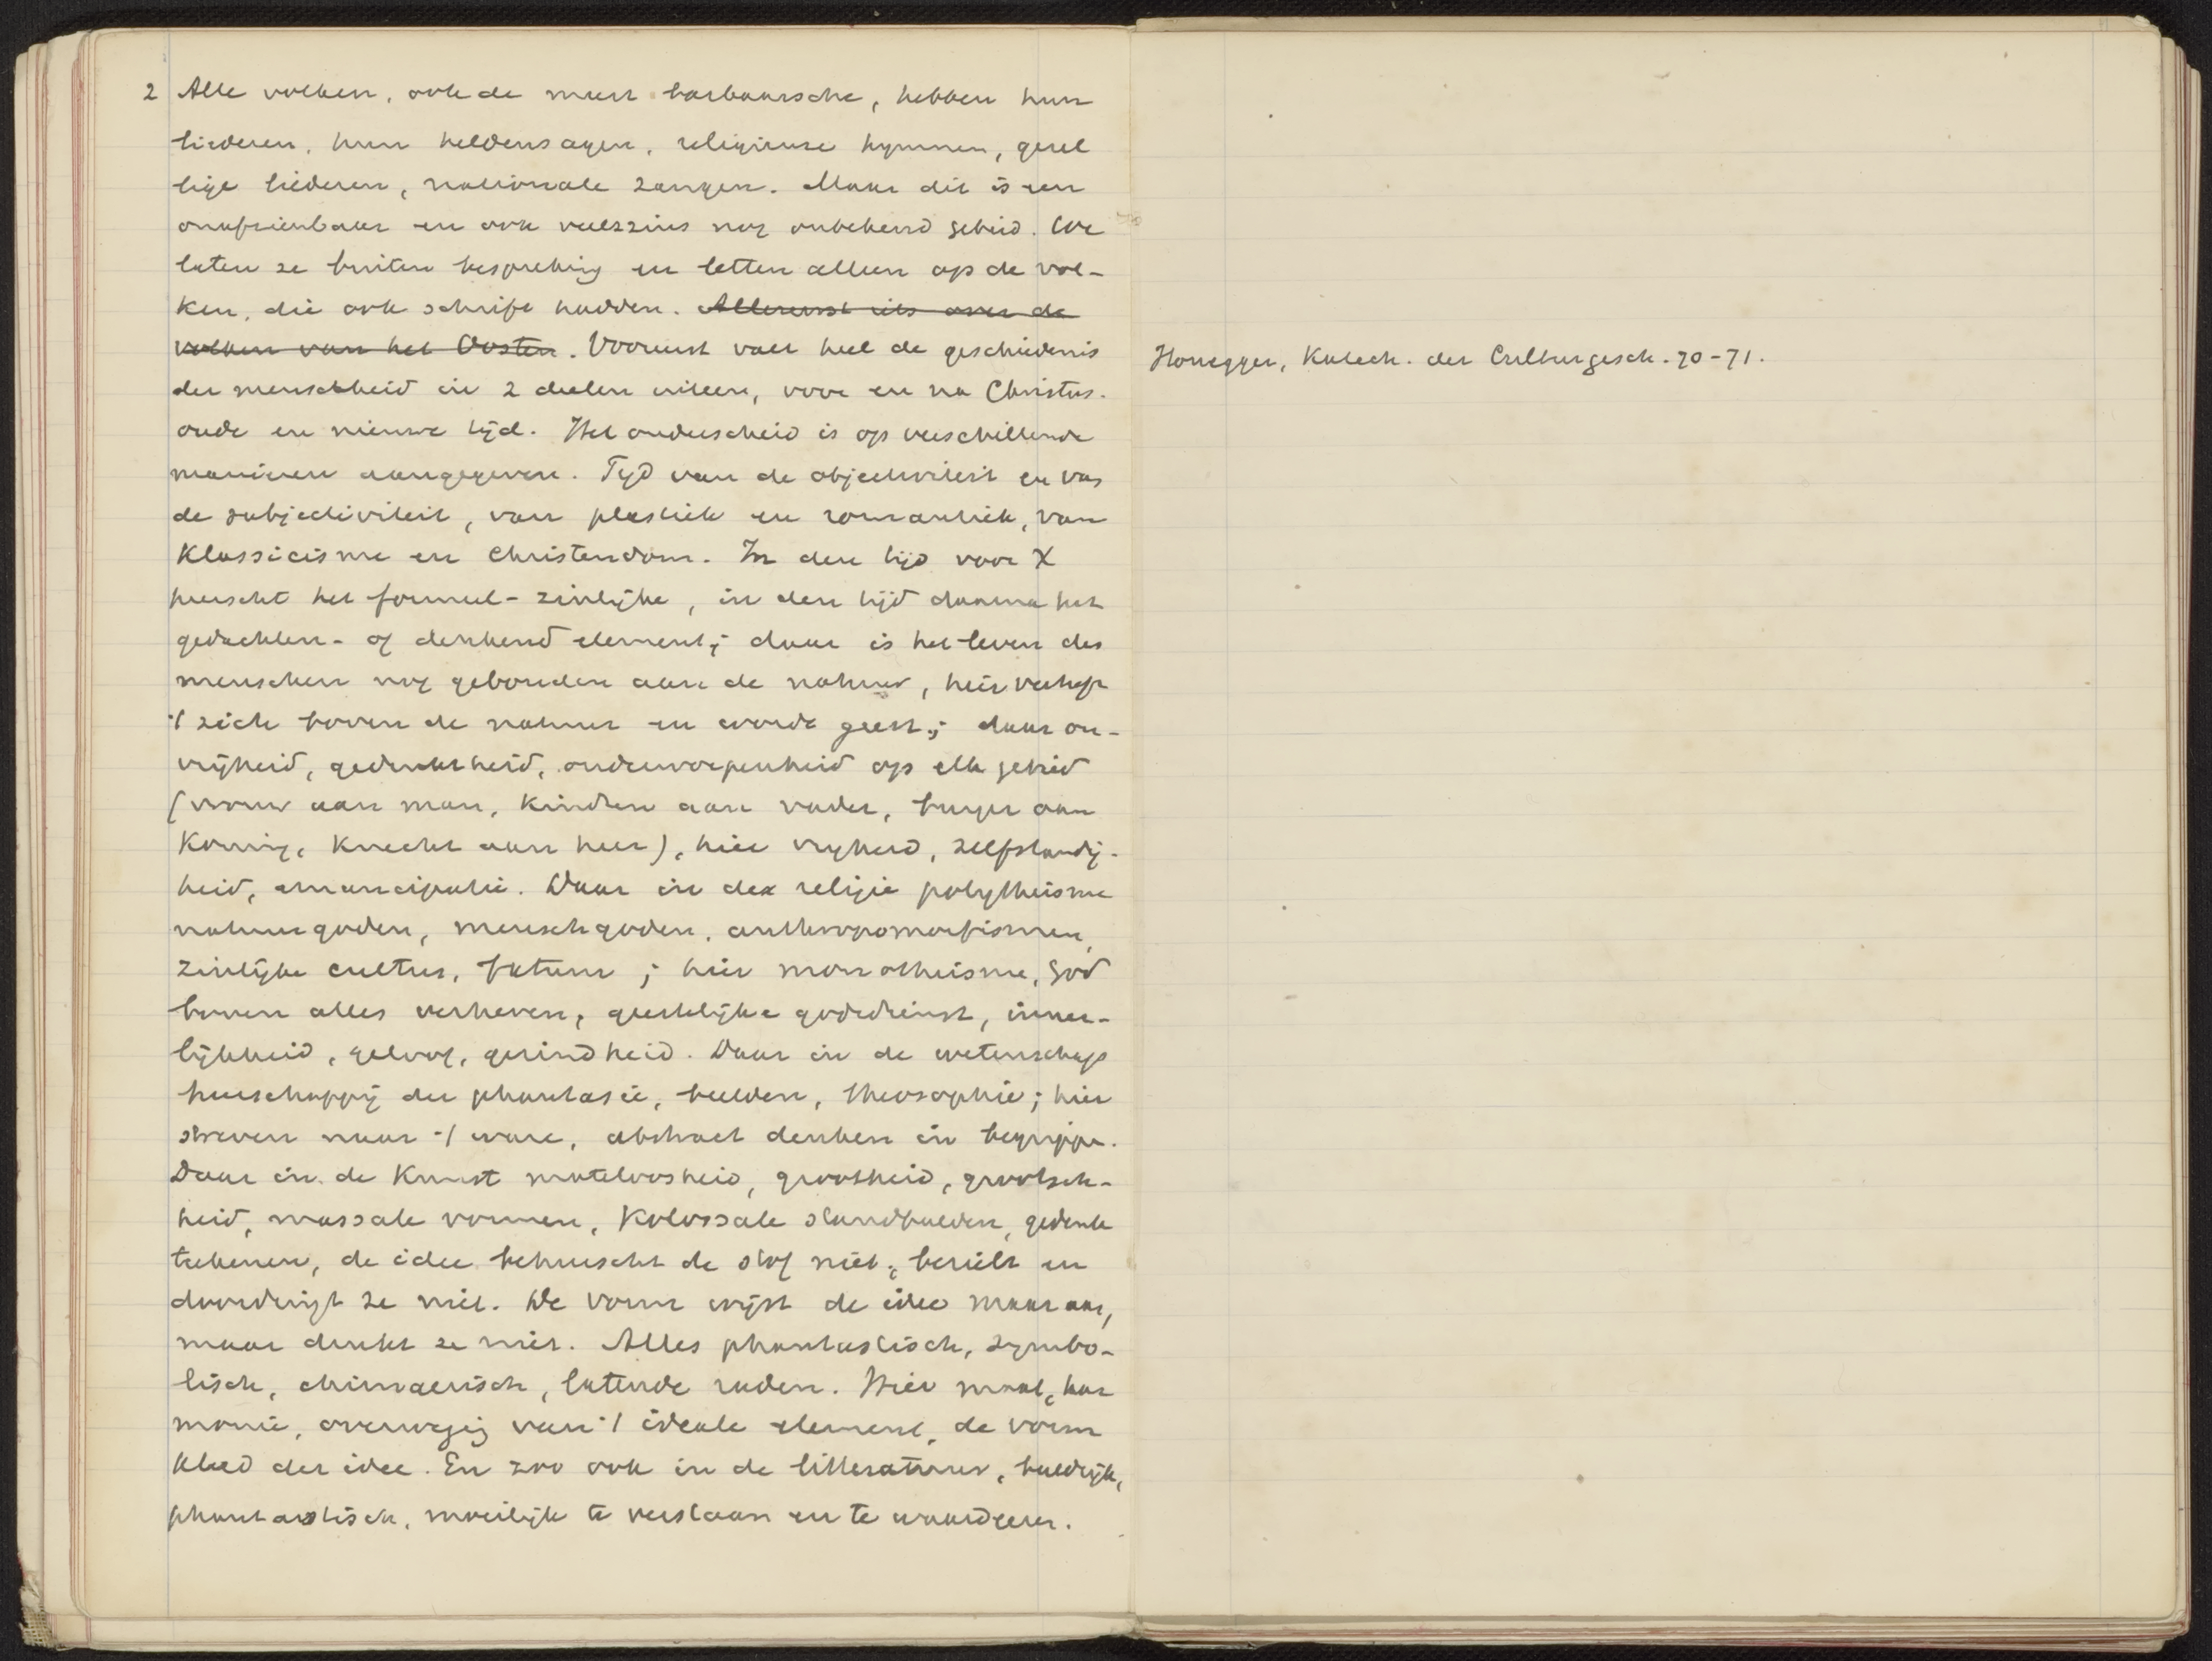 2 Alle volken, ook de meest barbaarsche, hebben hun
liederen, hun heldensagen, religieuse hymnen, gezel
lige liederen, nationale zangen. Maar dit is een
onafzienbaar en ook veelszins nog onbekend gebied. We
laten ze buiten bespreking en letten alleen op de vol-
ken, die ook schrift hadden. Allereerst iets over de
volken van het Oosten. Vooreerst valt heel de geschiedenis
der menschheid in 2 deelen uiteen, voor en na Christus.
oude en nieuwe tijd. Het onderscheid is op verschillende
manieren aangegeven. Tijd van de objectiviteit en van
de subjectiviteit, van plastiek en romantiek, van
Klassicisme en Christendom. In den tijd voor X
heerscht het formeel-zinlijke, in den tijd daarna het
gedachten- of denkend element; daar is het leven des
menschen nog gebonden aan de natuur, hier verheft
't zich boven de natuur en wordt geest; daar on-
vrijheid, gedruktheid, onderworpenheid op elk gebied
(vrouw aan man, kinderen aan vader, burger aan
Koning, Knecht aan heer), hier vrijheid, zelfstandig-
heid, emancipatie. Daar in der religie polytheisme
natuurgoden, menschgoden, anthropomorfismen,
zinlijke cultus, fatum; hier monotheisme, God
boven alles verheven, geestelijke godsdienst, inner-
lijkheid, geloof, gezindheid. Daar in de wetenschap
heerschappij der phantasie, beelden, theosophie; hier
streven naar 't ware, abstract denken in begrippen.
Daar in de Kunst mateloosheid, grootheid, grootsch-
heid, massale vormen, Kolossale standbeelden, gedenk
teekenen, de idee beheerscht de stof niet, bezielt en
doordringt ze niet. De vorm wijst de idee maar aan,
maar drukt ze niet. Alles phantastisch, symbo-
lisch, chimaerisch, latende raden. Hier maat, har
monie, overweging van 't ideale element, de vorm
Kleed der idee. En zoo ook in de litteratuur, beeldrijk,
phantastisch, moeilijk te verstaan en te waardeeren.
Honegger, Katech. der Culturgesch. 70-71.